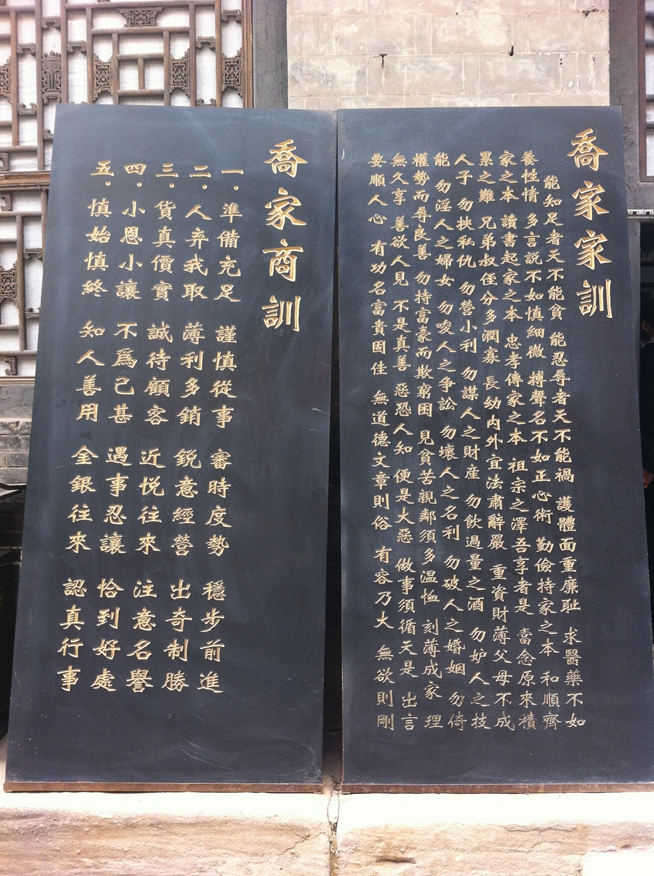 喬家家訓
能知足者天不能貧 能忍辱者天不能禍 護體面重廉耻 求醫藥不如
養性情 多言説不如慎細微 搏聲名不如正心術 勤儉持家之本 和順齊
家之本 讀書起家之本 忠孝傳家之本 祖宗之澤吾享者是 當念原來積
累之難 兄弟叔侄分多潤寡 長幼内外宜法肅辭嚴 重資財薄父母不成
人子 勿挾私仇 勿營小利 勿謀人之財産 勿飲過量之酒 勿妒人之技
能 勿淫人之婦女 勿唆人之争訟 勿壞人之名利 勿破人之婚姻 勿倚
權勢而辱良善 勿持富豪而欺窮困 見貧苦親鄰須多温恤 刻薄成家 理
無久享 善欲人見 不是真善 惡恐人知 便是大惡 做事須循天是 出言
要順人心 有功名富貴固佳 無道德文章則俗 有容乃大 無欲則剛
喬家商訓
一．準備充足 謹慎從事 審時度勢 穩步前進
二．人弃我取 薄利多銷 鋭意經營 出奇制勝
三．貨真價實 誠待顧客 近悦往來 注意名譽
四．小恩小讓 不爲已甚 遇事忍讓 恰到好處
五．慎始慎終 知人善用 金銀往來 認真行事